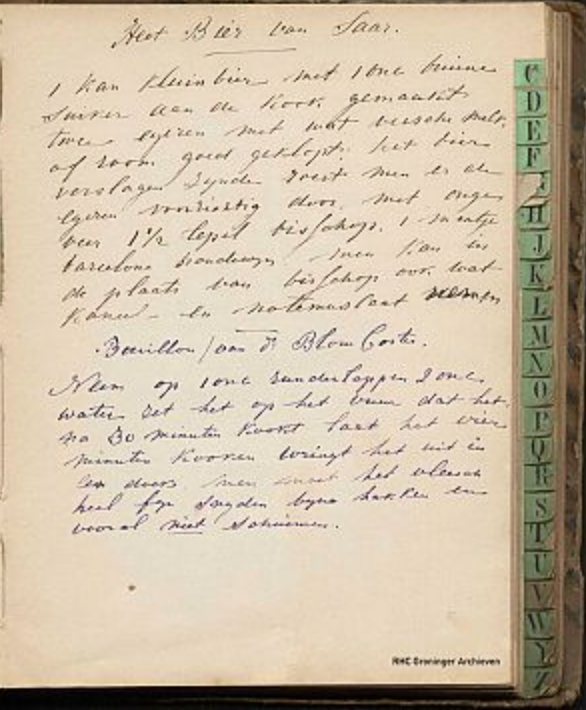 Heet Bier van Saar.
1 kan kleinbier met 1 onc bruine
suiker aan de kook gemaakt
twee eijeren met wat versche melk
of room goed geklopt. het bier
verslagen zijnde roert men er de
eijeren voorzichtig door, met onge
veer 1½ lepel bisschop. 1 maatje
barcelona brandewijn men kan in
de plaats van bisschop ook wat
kaneel en notemuskaat nemen
Bouillon van Dr Blom Coster.
Neem op 1 onc runderlappen 2 onc
water zet het op het vuur dat het
na 30 minuten kookt laat het vier
minuten kooken wringt het uit in
een doek. men moet het vleesch
heel fijn snyden byna hakken en
vooral niet schuimen.
C
D
E
F
H
J
K
L
M
N
O
P
Q
R
S
T
U
V
W
Y
Z
RHC Groninger Archieven